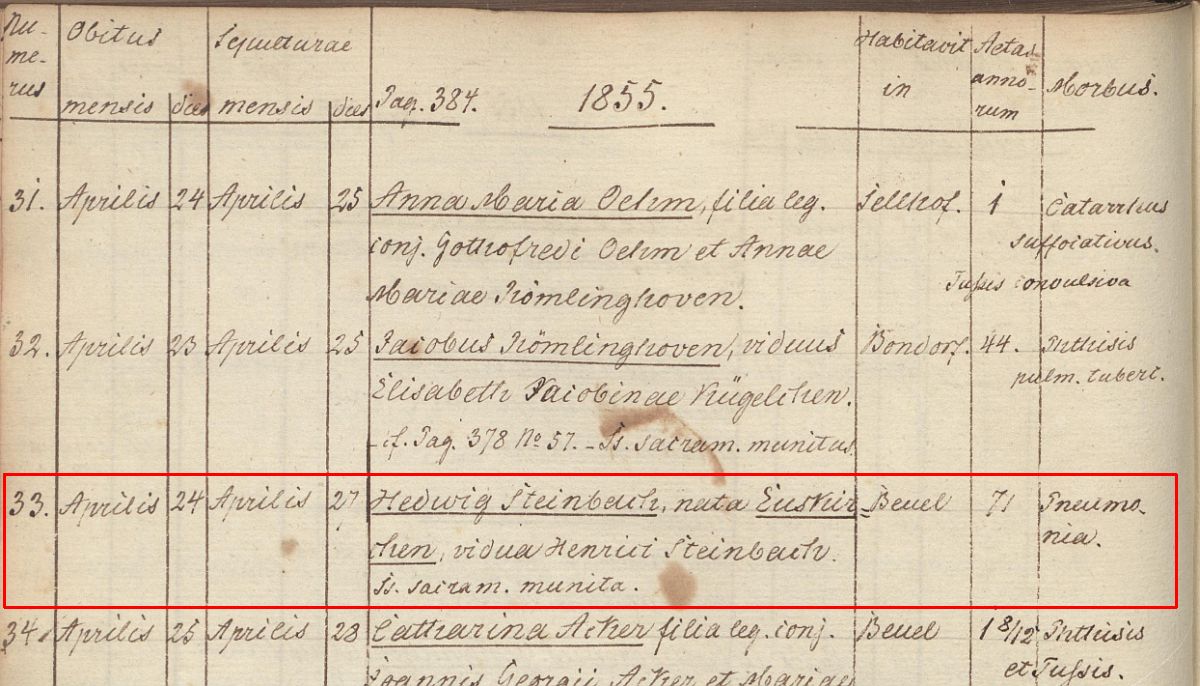 Nu-
me-
rus
Obitus
mensis dies
Sepulturae
mensis dies
Pag. 384. 1855.
Habitavit
in
Aetas
anno-
rum
Morbus.
31. Aprilis 24 Aprilis 25 Anna Maria Oehm, filia leg. Sellhof. 1 Catarrhus
conj. Gothofredi Oehm et Annae suffocativus.
Mariae Römlinghoven. Tussis convulsiva
32. Aprilis 23 Aprilis 25 Jacobus Römlinghoven, viduus Bondorf. 44. Phthisis
Elisabeth Jacobinae Kügelchen. pulm. tuberc.
cf. Pag. 378 No 57. - Ss. sacram. munitus.
33. Aprilis 24 Aprilis 27 Hedwig Steinbach, nata Euskir- Beuel 71 Pneumo-
chen, vidua Henrici Steinbach. nia.
Ss. sacram. munita.
34. Aprilis 25 Aprilis 28 Catharina Acker filia leg. conj. Beuel 1 8/12 Phthisis
Joannis Georgii Acker et Mariae et Tussis.